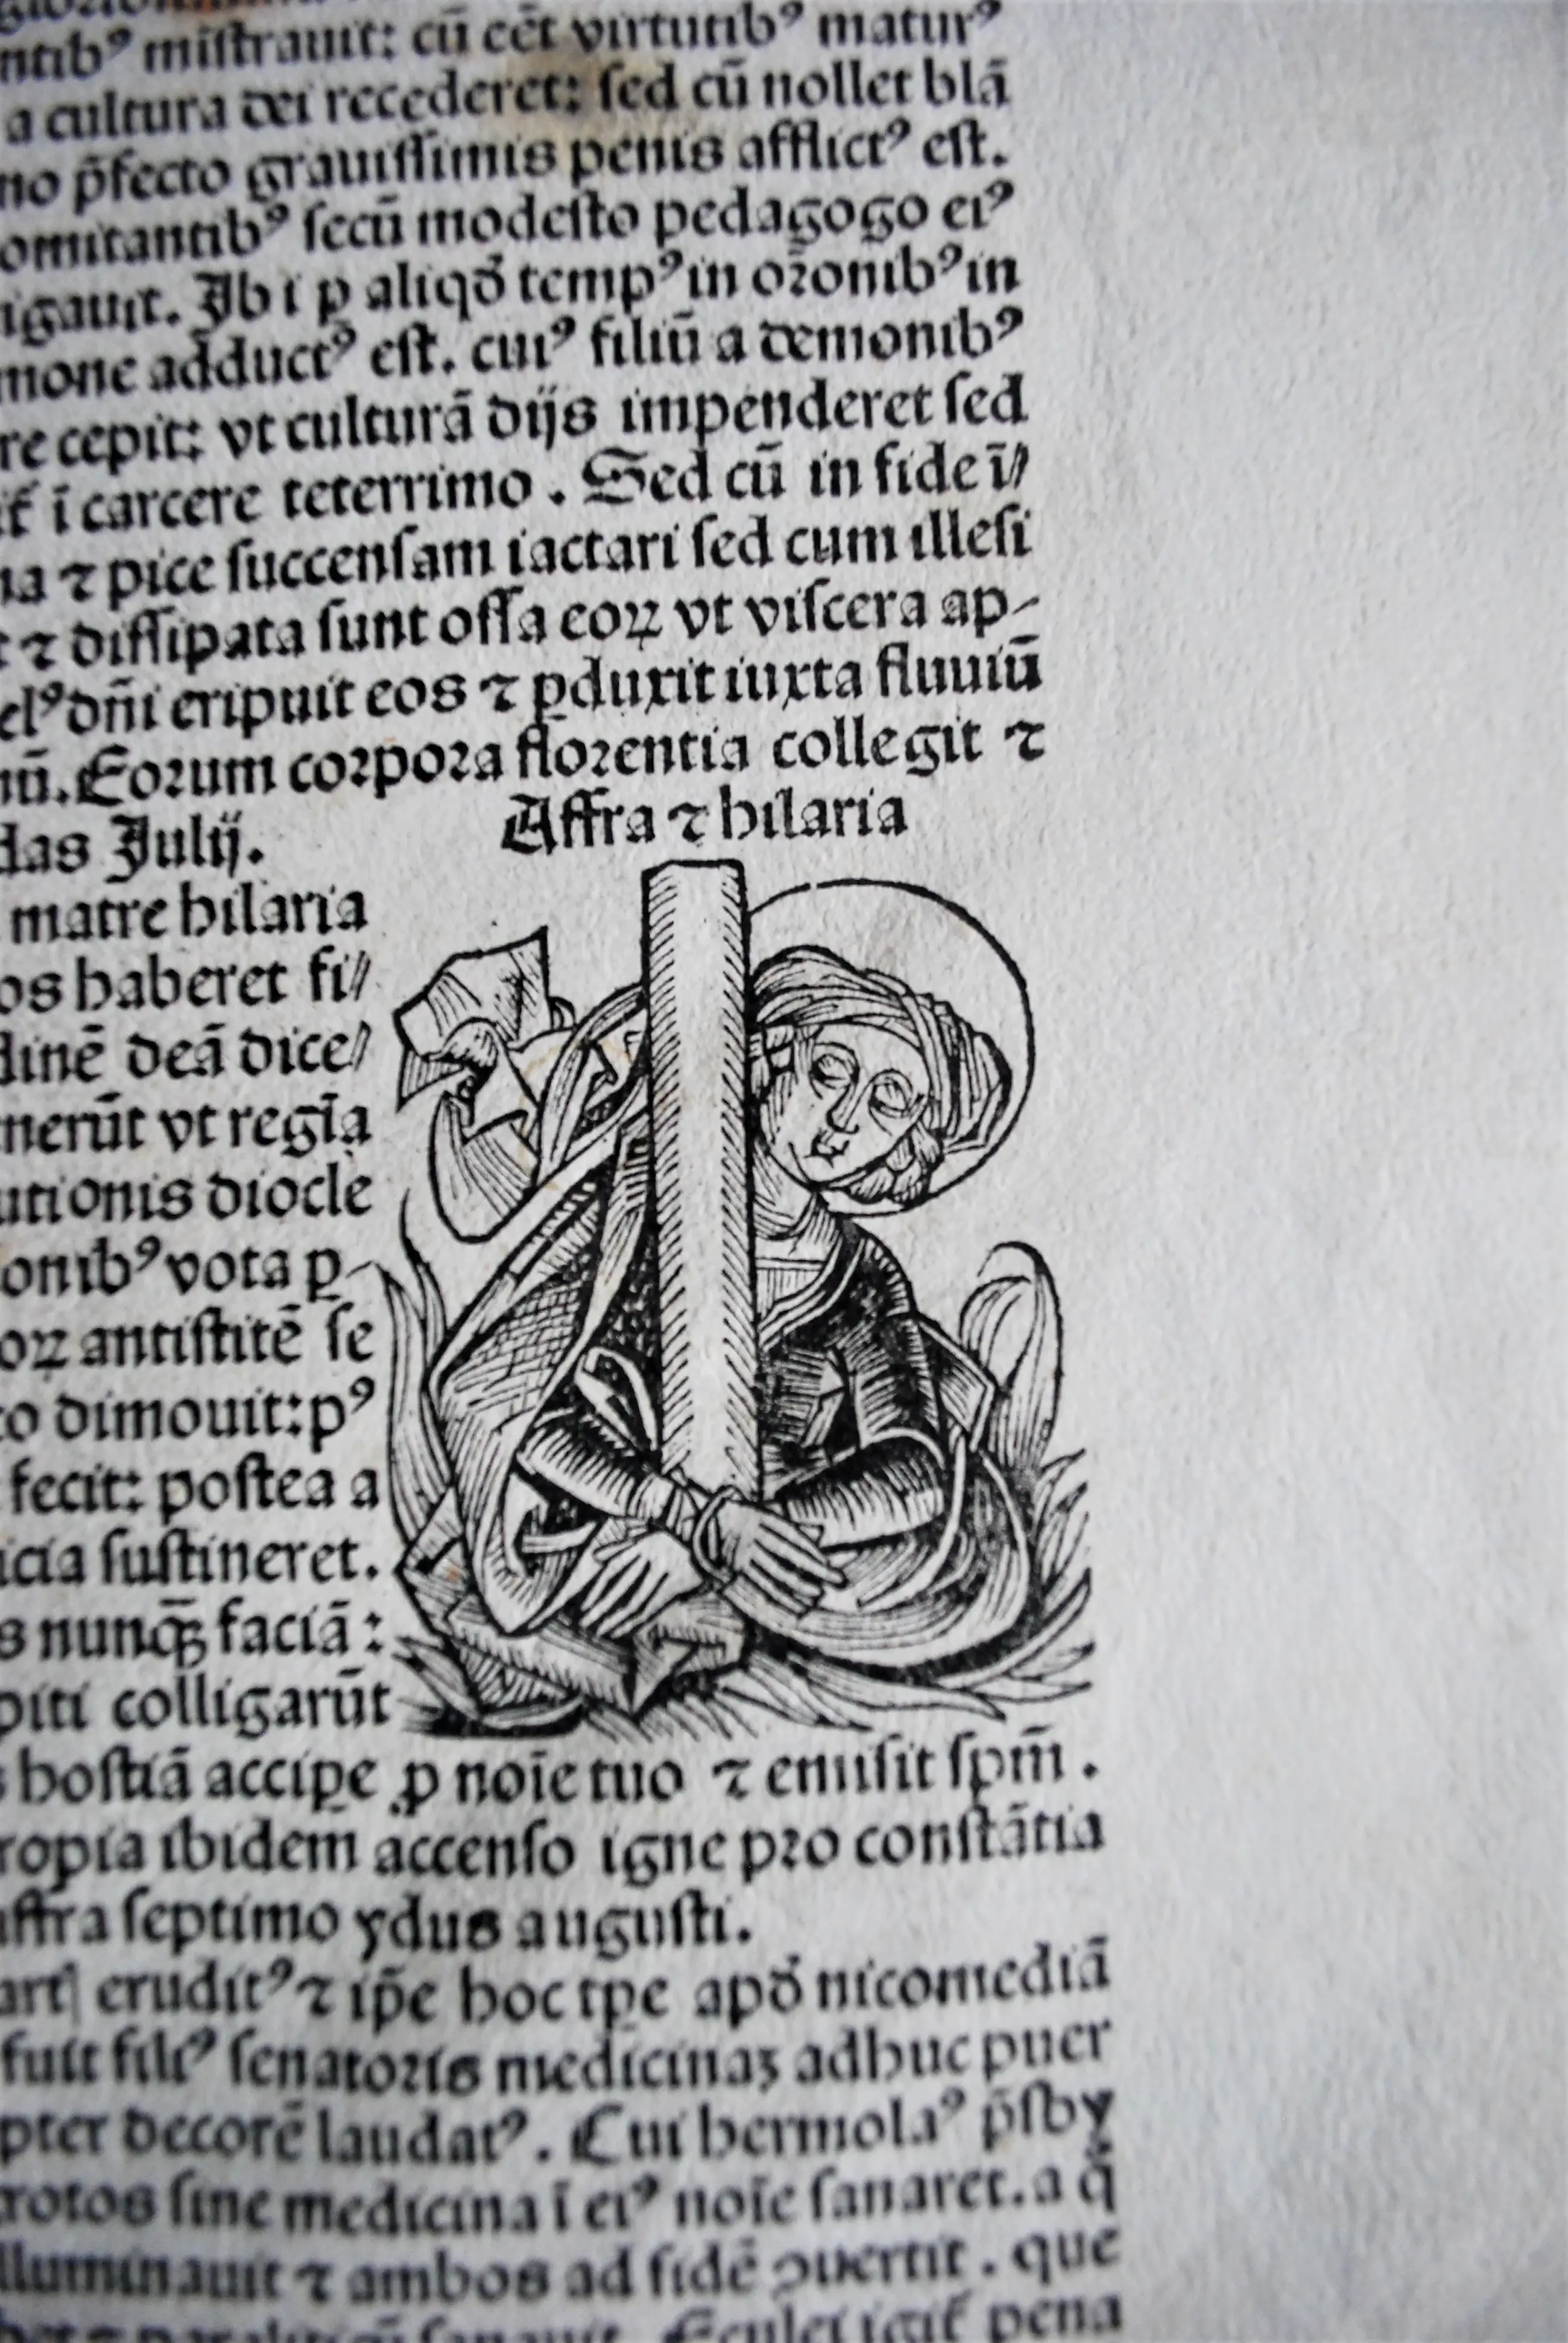 ntibꝰ miſtrauit: cū eēt virtutibꝰ maturꝰ
a cultura dei recederet: ſed cū nollet blā
no p̄fecto grauiſſimis penis afflictꝰ eſt.
omitantibꝰ ſecū modeſto pedagogo eiꝰ
igauit. Ibi ꝑ aliqd̄ tempꝰ in oꝛonibꝰ in
mone adductꝰ eſt. cuiꝰ filiū a demonibꝰ
re cepit: vt culturā dijs impenderet ſed
ī carcere teterrimo. Sed cū in fide ī//
na ⁊ pice ſuccenſam iactari ſed cum illeſi
t ⁊ diſſipata ſunt oſſa eoꝝ vt viſcera ap-
elꝰ dn̄i eripuit eos ⁊ ꝑduxit iuxta fluuiū
nū. Eoꝛum coꝛpoꝛa floꝛentia collegit ⁊
das Julij.
Affra ⁊ hilaria
matre hilaria
os haberet fi//
dinē deā dice//
nerūt vt regīa
utionis diocle
onibꝰ vota ꝑ-
oꝝ antiſtitē ſe
to dimouit: pꝰ
fecit: poſtea a
icia ſuſtineret.
s nunqꝫ̄ faciā:
piti colligarūt
s hoſtiā accipe ꝓ noīe tuo ⁊ emiſit ſpm̄.
ropia ibidem accenſo igne pꝛo conſtātia
affra ſeptimo ydus auguſti.
eruditꝰ ⁊ ip̄e hoc tpe apd̄ nicomediā
fuit filiꝰ ſenatoꝛis medicinaꝫ adhuc puer
pter decorē laudatꝰ. Cui hermolaꝰ p̄ſby
rotos ſine medicina ī eiꝰ noīe ſanaret. a q̄
lluminauit ⁊ ambos ad fidē ꝯuertit. que
pena